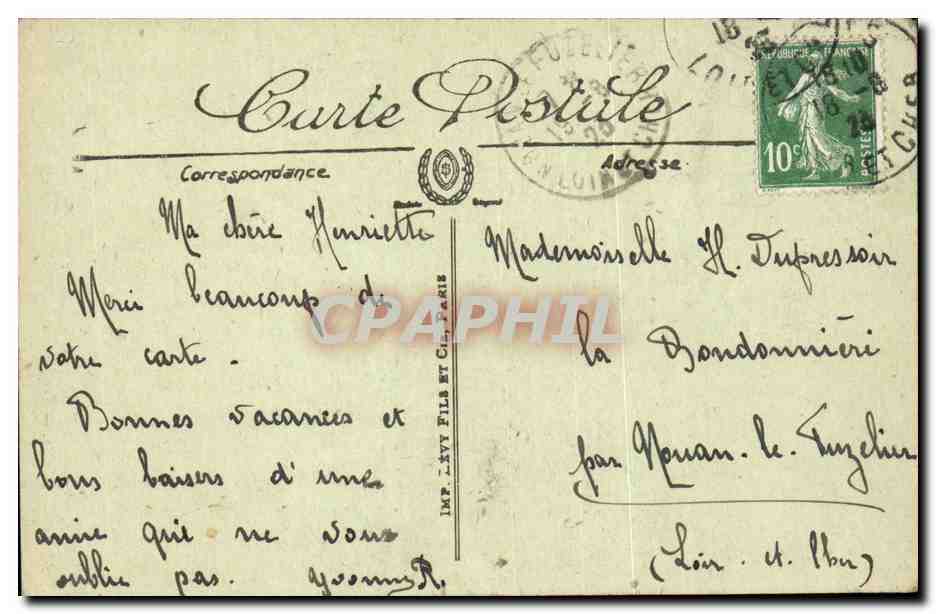 Carte Postale
Correspondance
Adresse
Ma chère Henriette
Merci beaucoup de
votre carte.
Bonnes vacances et
bons baisers d'une
amie qui ne vous
oublie pas. Yvonne R.
IMP. LÉVY FILS ET CIE, PARIS
Mademoiselle H. Dupressoir
la Bondonnière
par Nouan-le-Fuzelier
(Loir-et-Cher)
RÉPUBLIQUE FRANÇAISE
10c
POSTES
CPAPHIL